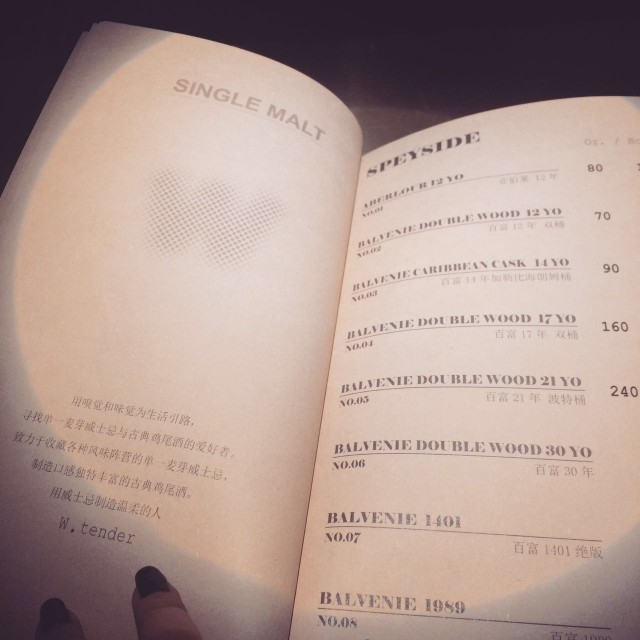 SINGLE MALT
用嗅觉和味觉为生活引路,
寻找单一麦芽威士忌与古典鸡尾酒的爱好者。
致力于收藏各种风味阵营的单一麦芽威士忌,
制造口感独特丰富的古典鸡尾酒。
用威士忌制造温柔的人
W.tender
SPEYSIDE
Oz. /
ABERLOUR 12 YO 80
NO.01 12年
BALVENIE DOUBLE WOOD 12 YO 70
NO.02 百富 12年 双桶
BALVENIE CARIBBEAN CASK 14 YO 90
NO.03 百富 14年加勒比海朗姆桶
BALVENIE DOUBLE WOOD 17 YO 160
NO.04 百富 17年 双桶
BALVENIE DOUBLE WOOD 21 YO 240
NO.05 百富 21年 波特桶
BALVENIE DOUBLE WOOD 30 YO
NO.06 百富 30年
BALVENIE 1401
NO.07 百富 1401 绝版
BALVENIE 1989
NO.08 百富 1989